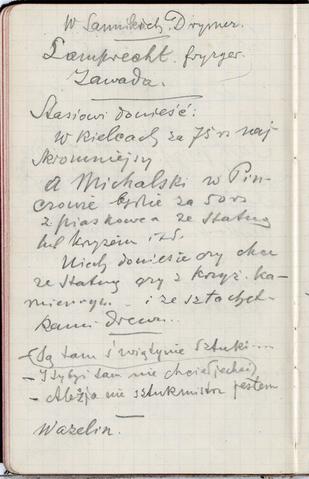 W Sannikach. Drymer.
Lamprecht. fryzyer.
Zawada.
Stasiowi donieść:
w Kielcach za 75 rs naj
skromniejszy
A Michalski w Pin-
czowie będzie za 50 rs
z piaskowca ze statuą
lub krzyżem itd.
Niech doniesie czy chce
ze statuą czy z krzyż. ka-
miennym i ze sztachet-
kami drew...
- Są tam świątynie sztuki...
- I tybyś tam nie chciał jechać
- Ależ ja nie sztukmistrz jestem
Wazelin.